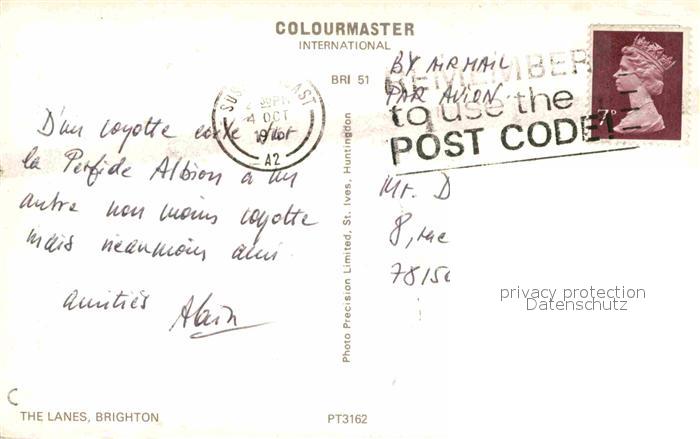 COLOURMASTER
INTERNATIONAL
BRI 51
BY AIR MAIL
PAR AVION
REMEMBER
to use the
POST CODE!
7P
SUSSEX COAST
PM
4 OCT
19
A2
D'un coyotte exilé
la Perfide Albion à un
autre non moins coyotte
mais néanmoins ami.
amitiés
Alain
Mr. D
8, rue
7815
Photo Precision Limited, St. Ives, Huntingdon
privacy protection
Datenschutz
THE LANES, BRIGHTON
PT3162